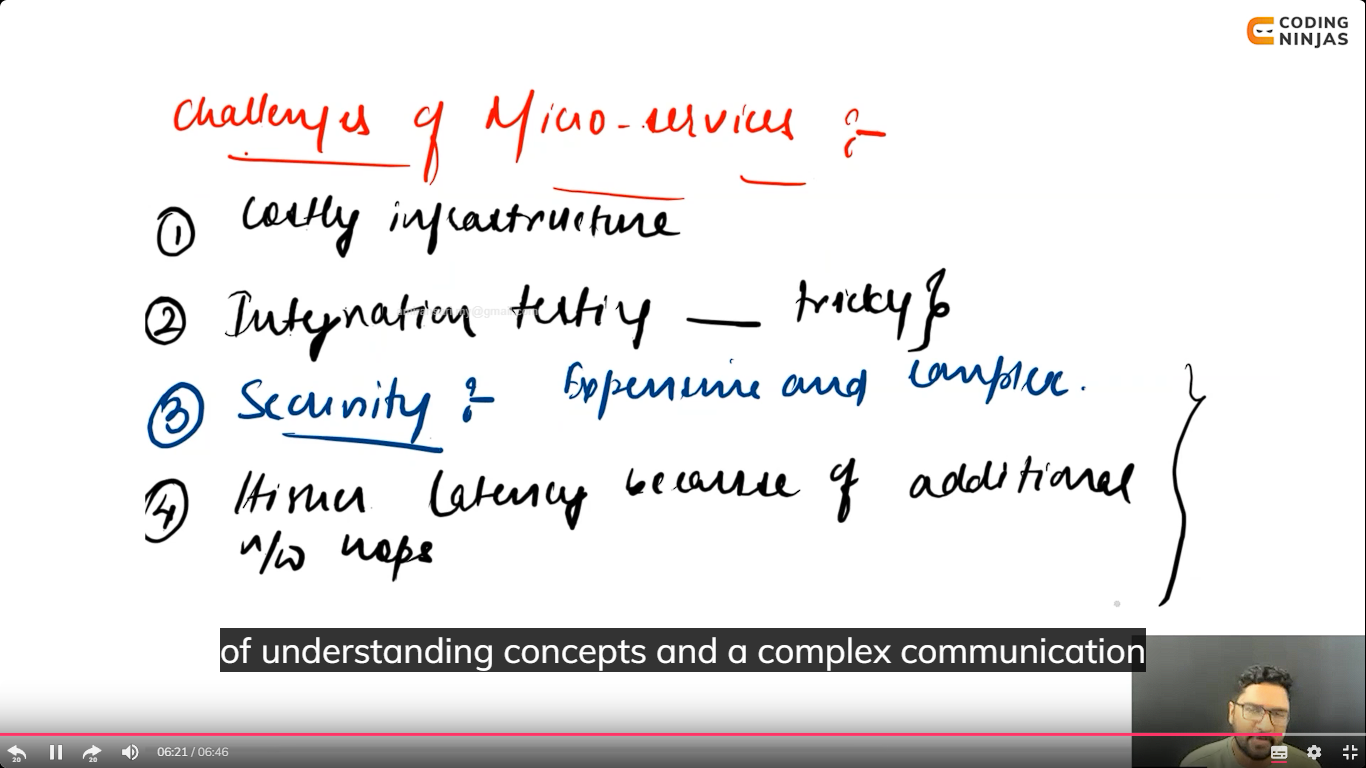 CODING
NINJAS
Challenges of Micro-services :-
① Costly infrastructure
② Integration testing — tricky }
③ Security :- Expensive and complex.
④ Higher latency because of additional
n/w hops
of understanding concepts and a complex communication
20
20
06:21 / 06:46